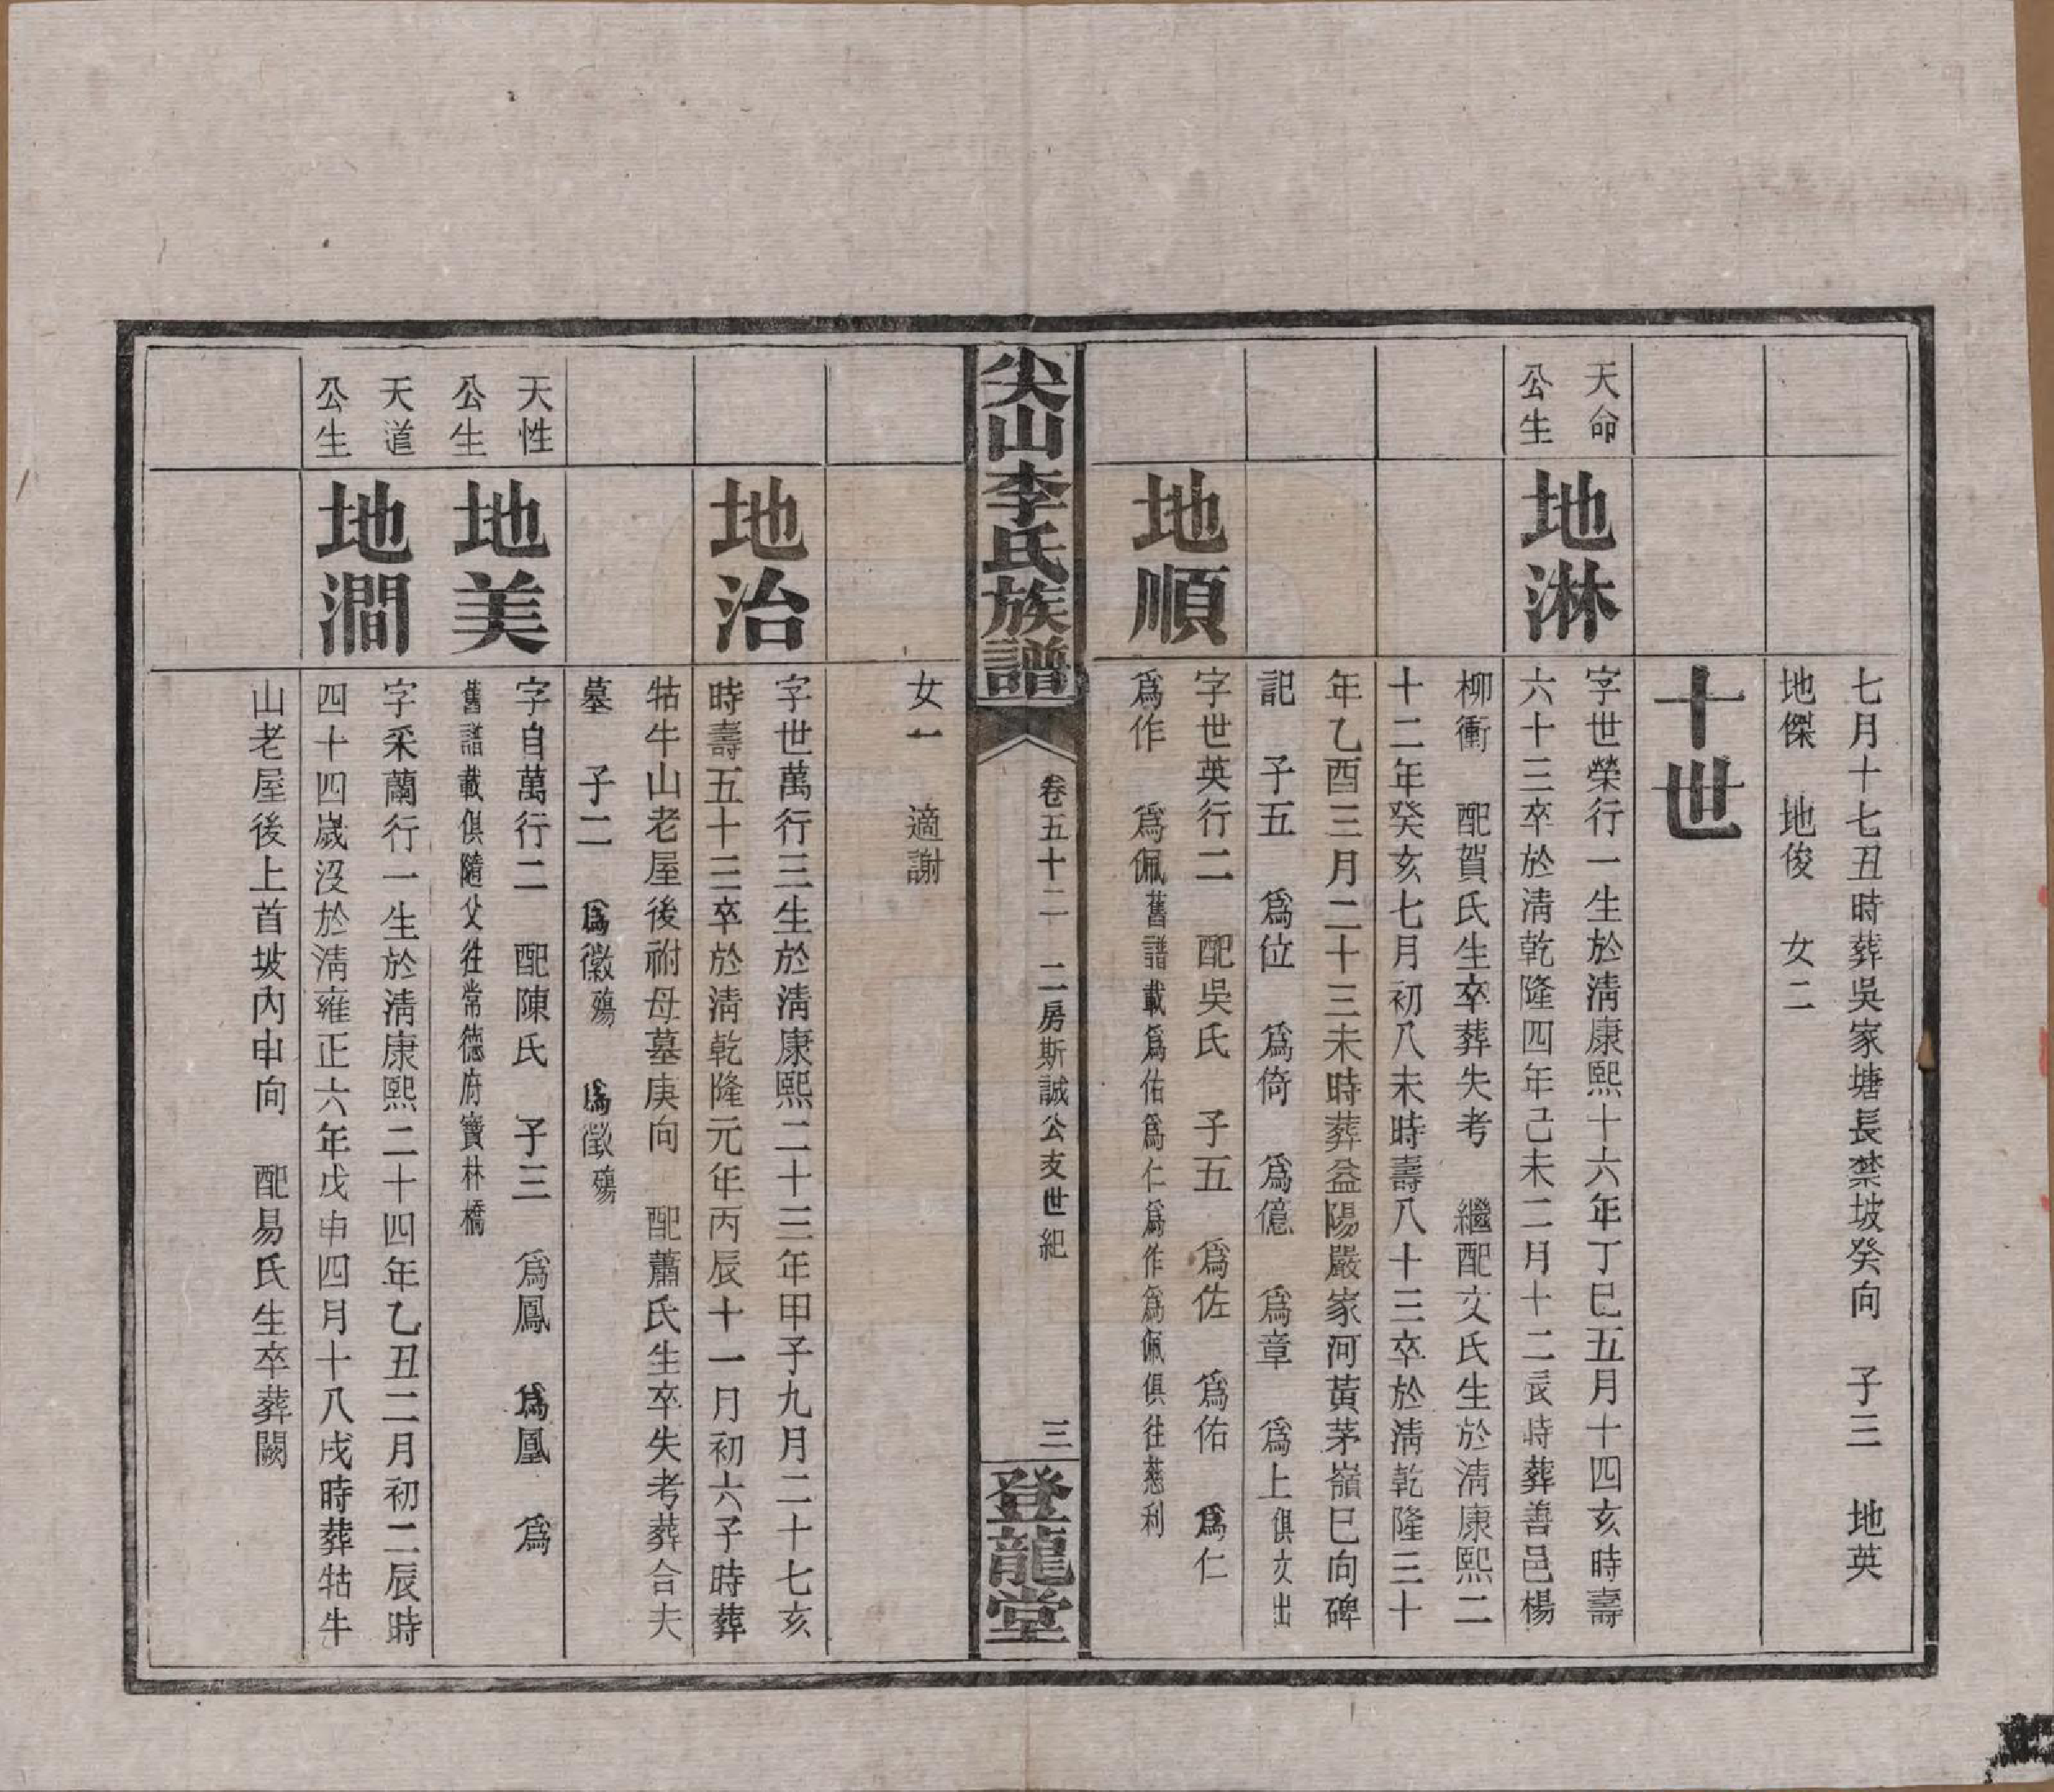 七月十七丑時葬吳家塘長禁坡癸向　子三　地英
地傑　地俊　女二
十世
天命
公生
地淋
字世榮行一生於淸康熙十六年丁巳五月十四亥時壽
六十三卒於淸乾隆四年己未二月十二辰時葬善邑楊
柳衝　配賀氏生卒葬失考　繼配文氏生於淸康熙二
十二年癸亥七月初八未時壽八十三卒於淸乾隆三十
年乙酉三月二十三未時葬益陽嚴家河黃茅嶺巳向碑
記　子五　爲位　爲倚　爲億　爲章　爲上俱文出
地順
字世英行二　配吳氏　子五　爲佐　爲佑　爲仁
爲作　爲佩舊譜載爲佑爲仁爲作爲佩俱往慈利
尖山李氏族譜
卷五十二　二房斯誠公支世紀
三
登龍堂
女一　適謝
地治
字世萬行三生於淸康熙二十三年甲子九月二十七亥
時壽五十三卒於淸乾隆元年丙辰十一月初六子時葬
牯牛山老屋後祔母墓庚向　配蕭氏生卒失考葬合夫
墓　子二　爲徽殤　爲徵殤
天性
公生
地美
字自萬行二　配陳氏　子三　爲鳳　爲凰　爲
舊譜載俱隨父往常德府寶林橋
天道
公生
地澗
字采蘭行一生於淸康熙二十四年乙丑二月初二辰時
四十四歲沒於淸雍正六年戊申四月十八戌時葬牯牛
山老屋後上首坡內申向　配易氏生卒葬闕